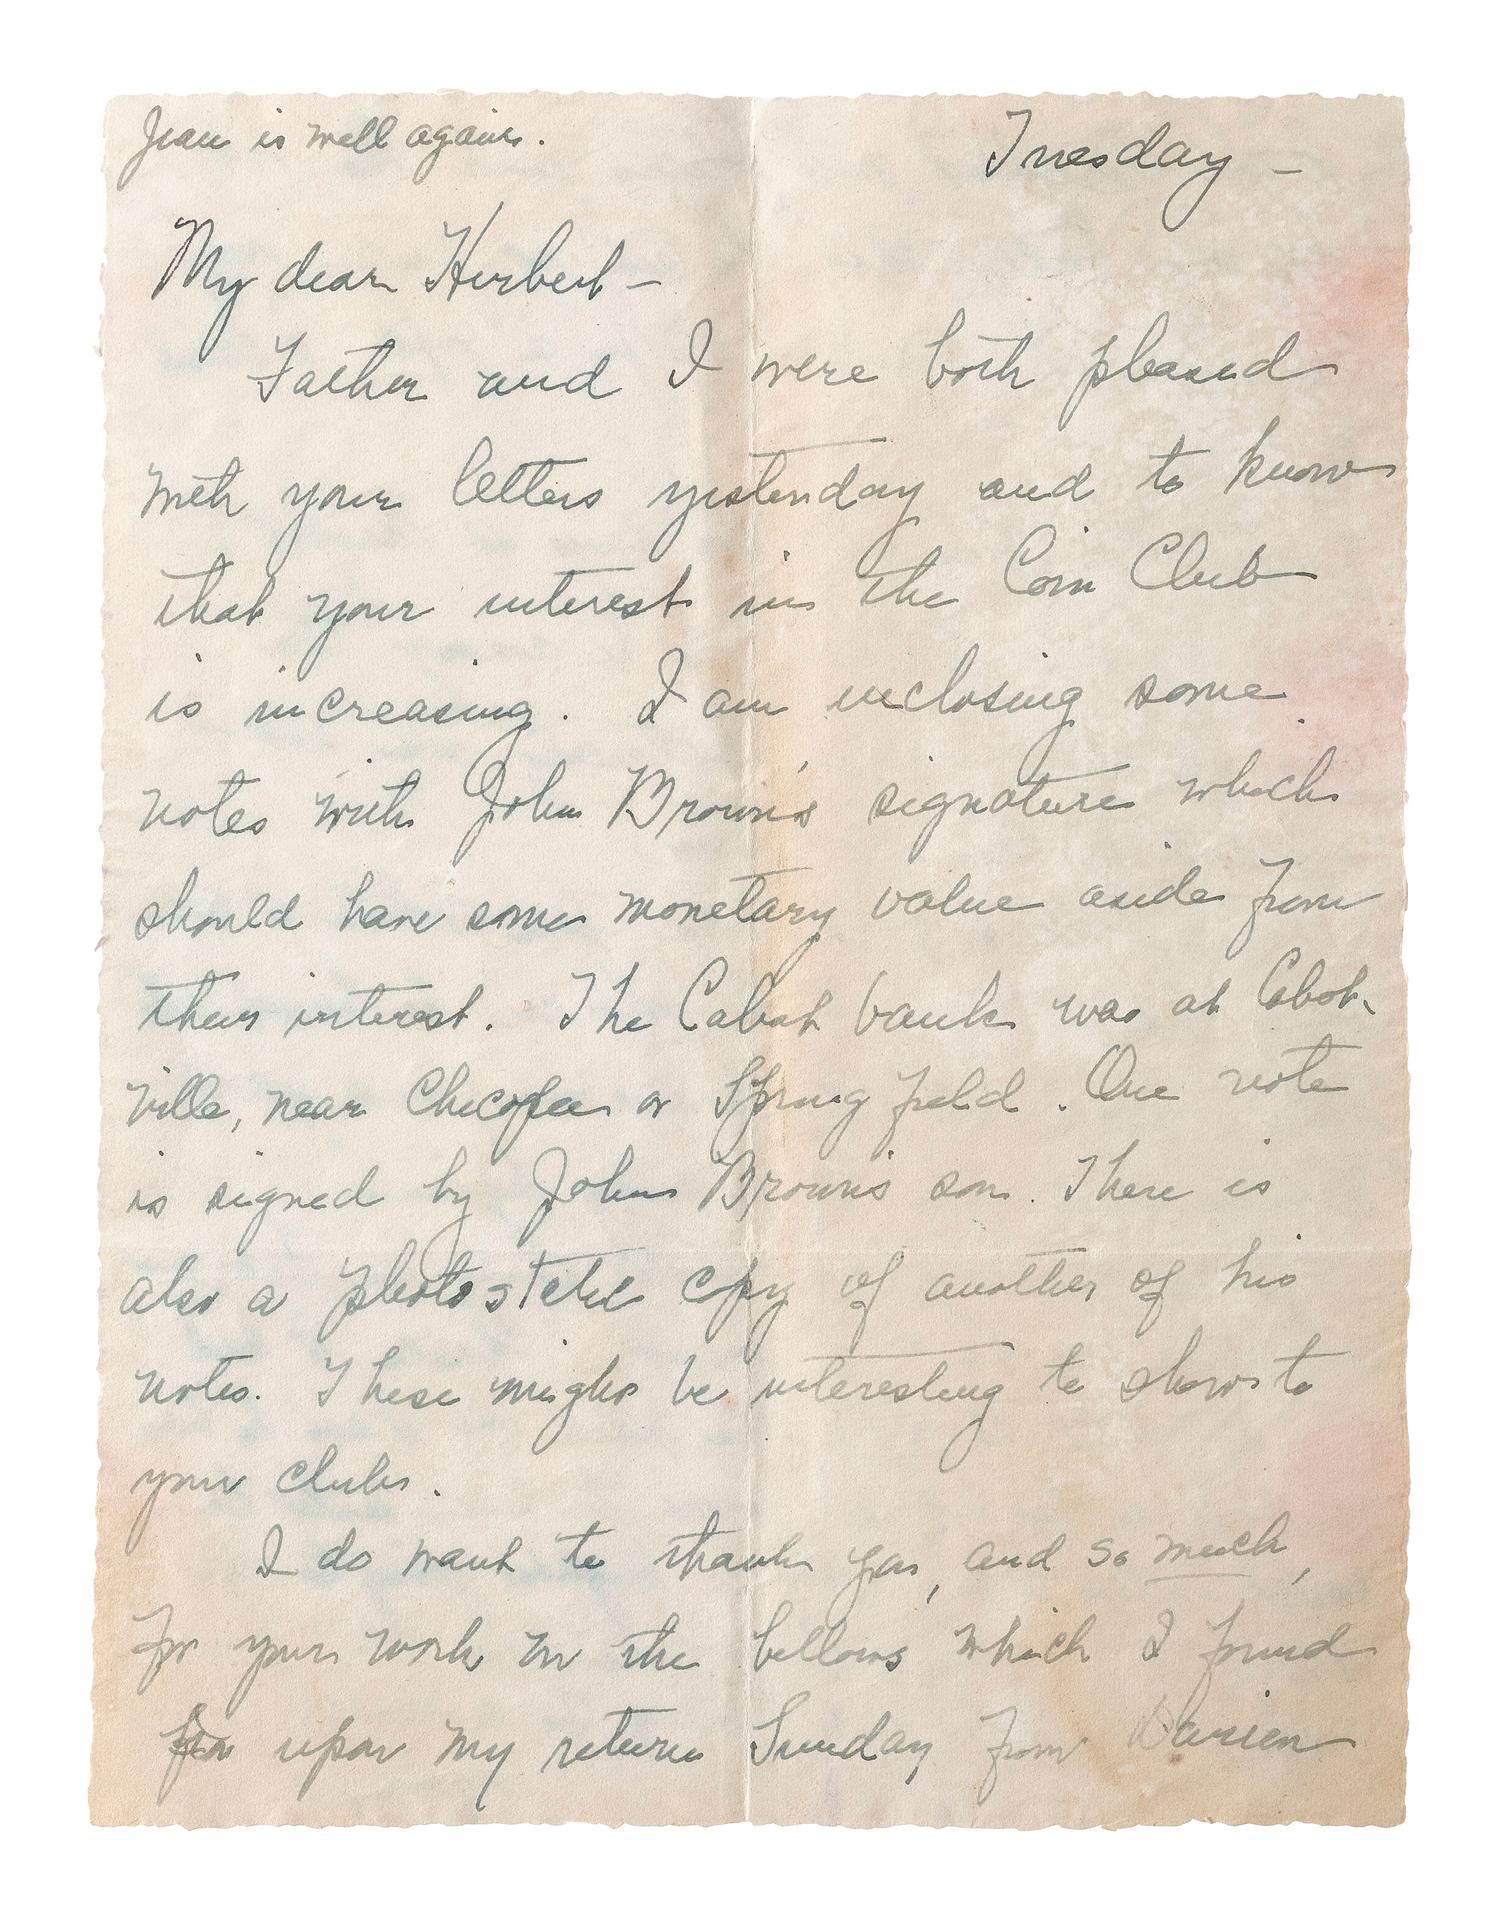 Jean is well again.
Tuesday –
My dear Herbert –
Father and I were both pleased
with your letters yesterday and to know
that your interest in the Coin Club
is increasing. I am inclosing some
notes with John Brown's signature which
should have some monetary value aside from
their interest. The Cabot bank was at Cabot-
ville, near Chicopee or Springfield. One note
is signed by John Brown's son. There is
also a copy of another of his
notes. These might be interesting to show to
your club.
I do want to thank you, and so much,
for your work on the bellows which I found
upon my return Sunday from Darien